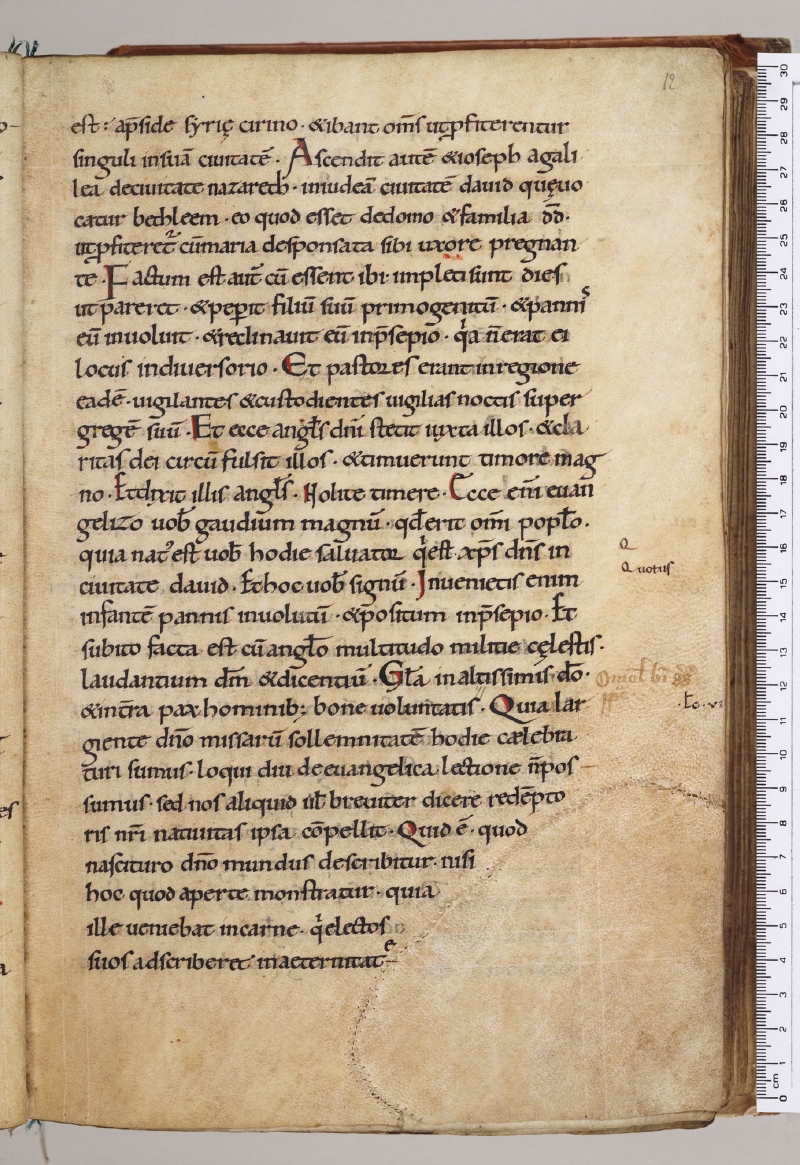 12
est: ap̄side syrię cirino. &ibant om̄s ut ꝓfiterentur
singuli in suā ciuitatē. Ascendit autē & ioseph agali
lea deciuitate nazareth. iniudeā ciuitatē dauid quęuo
catur bethleem. eo quod esset dedomo & familia dd̄.
ut ꝓfiteret᷑ cūmaria desponsata sibi uxore pregnan
te. Factum est aut̄ cū essent ibi impleti sunt dies
ut pareret. & peꝑit filiū suū primogenitū. & pannis
eū inuoluit. & reclinauit eū inp̄sepio. qͥa n̄ erat ei
locus indiuersorio. Et pastores erant inregione
eadē. uigilantes & custodientes uigilias noctis super
gregē suū. Et ecce angl̄s dn̄i stetit iuxta illos. & cla
ritas dei circū fulsit illos. & timuerunt timore mag
no. Et dixit illis angl̄s. Nolite timere. Ecce eni̅ euan
gelizo uob̄ gaudium magnū. qd̄ erit om̄i popl̄o.
quia nat᷒ est uob̄ hodie saluator qͥ est xp̄s dn̄s in
ciuitate dauid. Et hoc uob̄ signū. Inuenietis enim
Q
Quotus
infantē pannis inuolutū. & positum inp̄sepio. Et
subito facta est cū angl̄o multitudo militie cęlestis.
laudantium dm̄ & dicentiū. Gl̄a inaltissimis do̅.
& int̄ra pax hominib: bone uoluntatis. Quia lar
giente dn̄o missarū sollemnitatē hodie cælebra
turi sumus. loqui diu deeuangelica lectione n̄ pos
sumus. sed nos aliquid ul̄ breuiter dicere redēpto
ris nr̄i natiuitas ipsa cōpellit. Quid ē. quod
nascituro dn̄o mundus describitur. nisi
hoc quod aperte monstratur. quia
ille ueniebat incarne. qͥ electos
suos adscriberet inaeternitatē